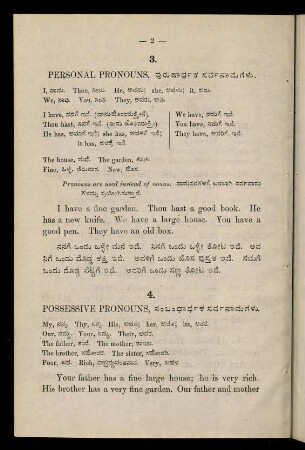 — 2 —
3.
PERSONAL PRONOUNS, ಪುರುಷಾರ್ಥಕ ಸರ್ವನಾಮಗಳು.
I, ನಾನು. Thou, ನೀನು. He, ಅವನು; she, ಅವಳು; it, ಅದು.
We, ನಾವು. You, ನೀವು. They, ಅವರು, ಅವು.
I have, ನನಗೆ ಇದೆ. We have, ನಮಗೆ ಇದೆ.
Thou hast, ನಿನಗೆ ಇದೆ. You have, ನಿಮಗೆ ಇದೆ.
He has, ಅವನಿಗೆ ಇದೆ; she has, ಅವಳಿಗೆ ಇದೆ; They have, ಅವರಿಗೆ ಇದೆ.
it has, ಇದೆ.
The house, ಮನೆ. The garden, ತೋಟ.
Fine, ಒಳ್ಳೆ, New, ಹೊಸ.
Pronouns are used instead of nouns. ನಾಮಪದಗಳಿಗೆ ಬದಲಾಗಿ ಸರ್ವನಾಮ
I have a fine garden. Thou hast a good book. He
has a new knife. We have a large house. You have a
good pen. They have an old box.
ನನಗೆ ಒಂದು ಒಳ್ಳೇ ಮನೆ ಇದೆ. ನಿನಗೆ ಒಂದು ಒಳ್ಳೇ ತೋಟ ಇದೆ. ಅವ
ನಿಗೆ ಒಂದು ದೊಡ್ಡ ಕತ್ತಿ ಇದೆ. ಅವಳಿಗೆ ಒಂದು ಹೊಸ ಪುಸ್ತಕ ಇದೆ. ನಮಗೆ
ಒಂದು ದೊಡ್ಡ ಪೆಟ್ಟಿಗೆ ಇದೆ. ಅವರಿಗೆ ಒಂದು ಸಣ್ಣ ತೋಟ ಇದೆ.
4.
POSSESSIVE PRONOUNS, ಸಂಬಂಧಾರ್ಥಕ ಸರ್ವನಾಮಗಳು.
My, ನನ್ನ. Thy, ನಿನ್ನ. His, ಅವನ; her, ಅವಳ; its, ಅದರ.
Our, ನಮ್ಮ. Your, ನಿಮ್ಮ. Their, ಅವರ.
The father, ತಂದೆ. The mother, ತಾಯಿ.
The brother, ಸಹೋದರ. The sister, ಸಹೋದರಿ.
Poor, ಬಡ. Rich, Very, ಬಹಳ.
Your father has a fine large house; he is very rich
His brother has a very fine garden. Our father and mother